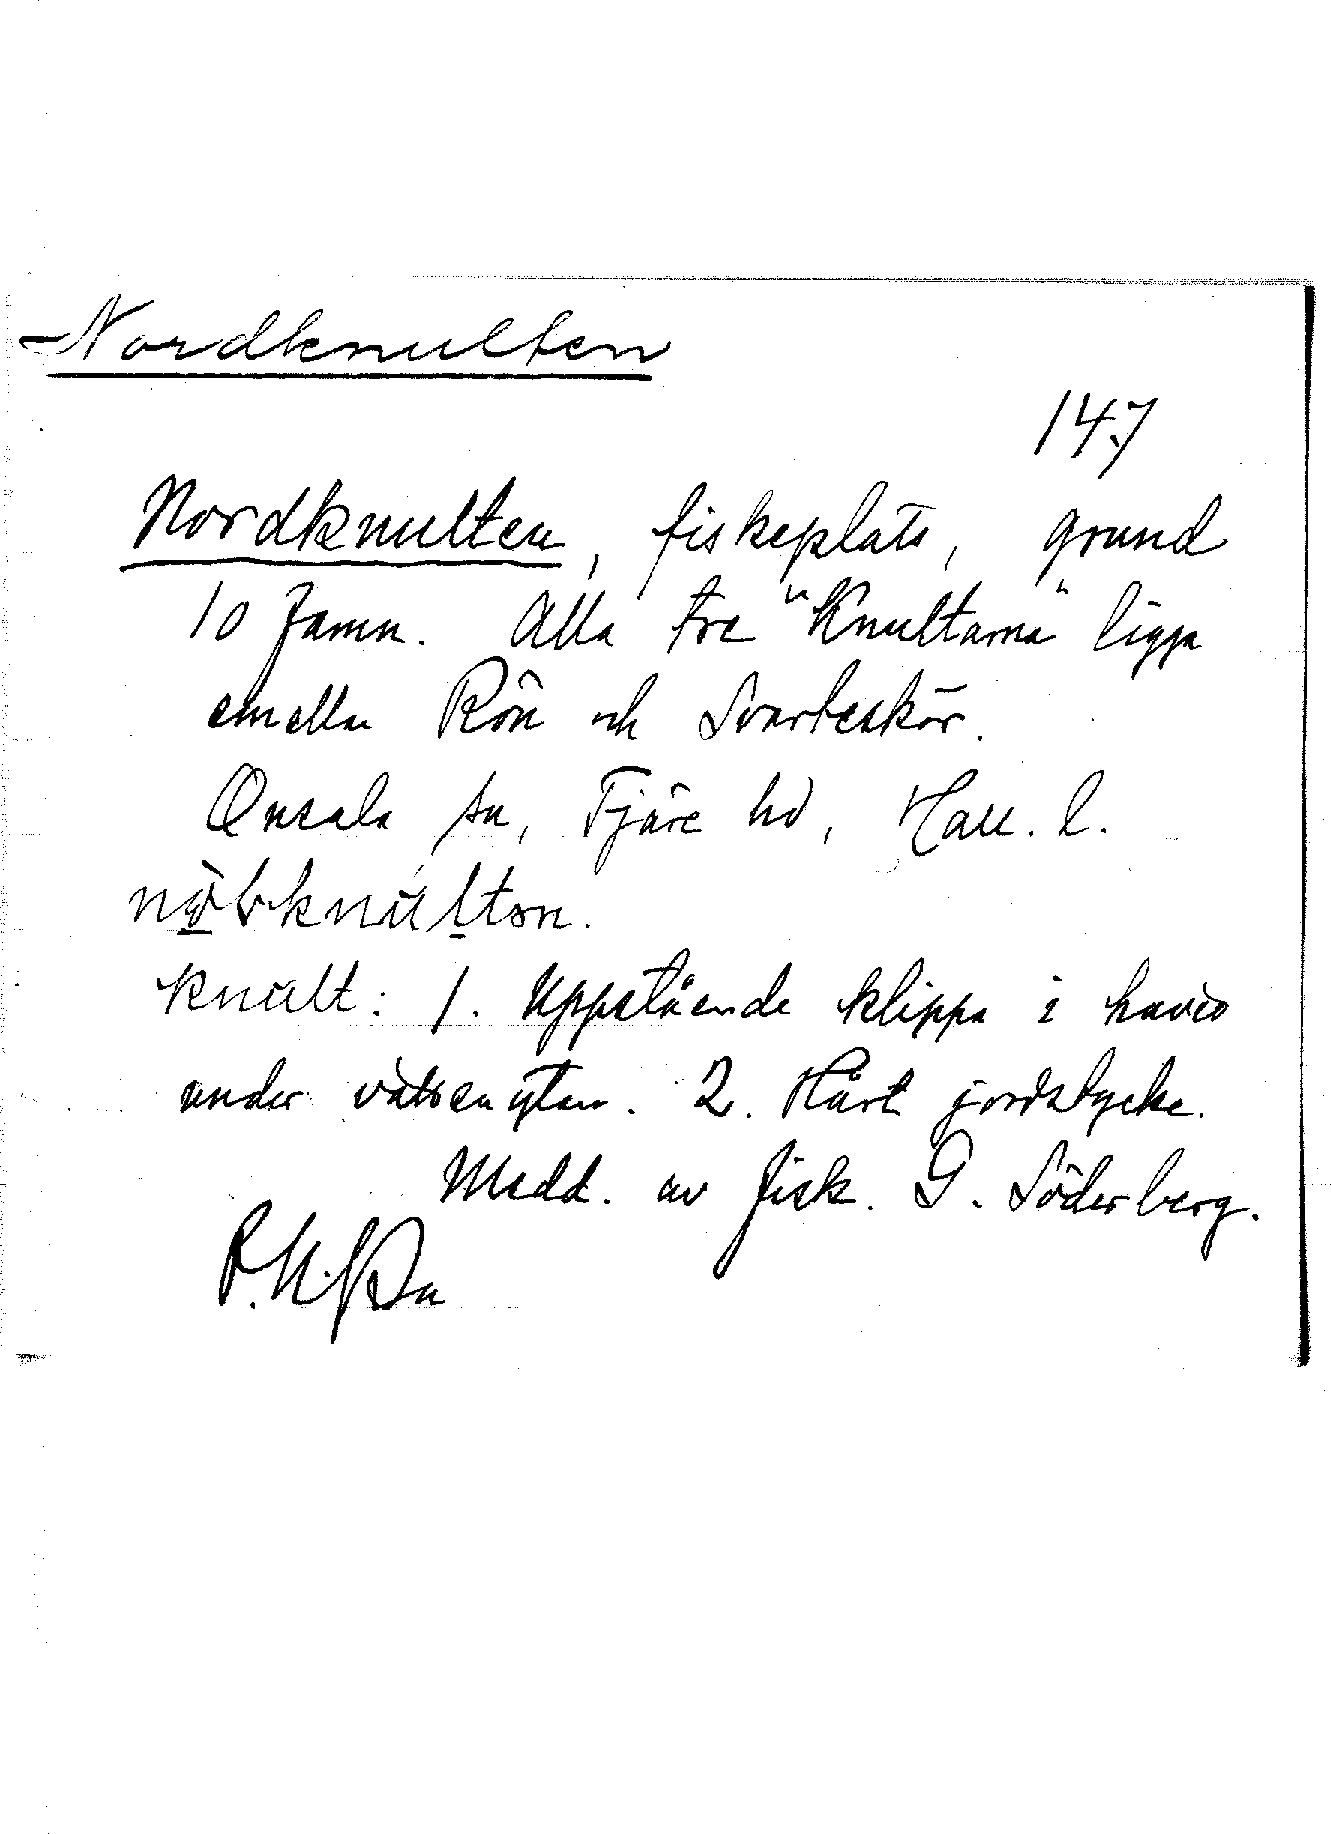 Nordknulten
147
Nordknulten, fiskeplats, grund
10 famn. Alla tre "Knultarna" ligga
emellan Rön och Svarteskär.
Onsala sn, Fjäre hd, Hall. l.
knült: 1. Uppstående klippa i havet
under vattenytan. 2. Hårt jordstycke.
Medd. av fisk. G. Söderberg.